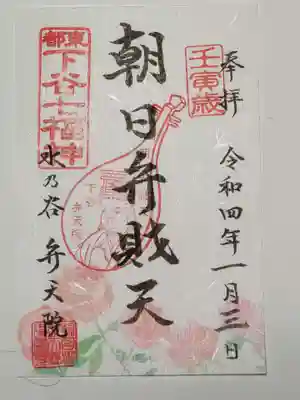 奉拝
壬寅歳
令和四年一月三日
朝日弁財天
下谷
弁天院
東都
下谷七福神
水乃谷 弁天院